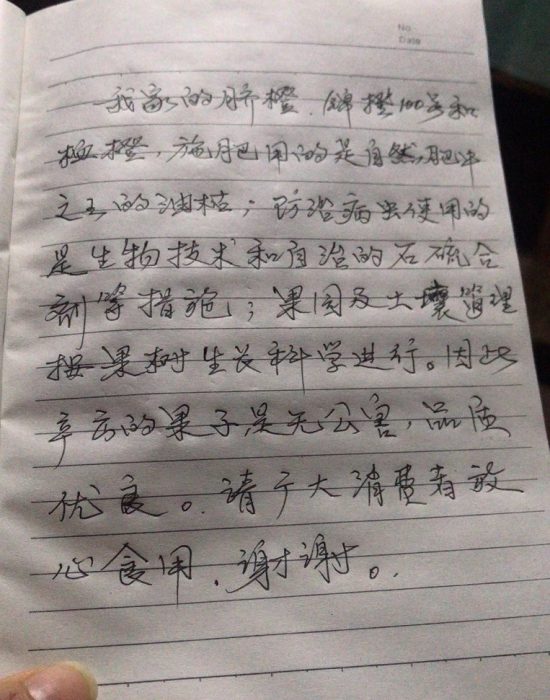 No
Date
我家的脐橙、锦橙100号和
血橙，施肥用的是自然肥中
之王的油枯；防治病虫使用的
是生物技术和自治的石硫合
剂等措施；果园及土壤管理
按果树生长科学进行。因此
产的果子是无公害，品质
优良。请广大消费者放
心食用，谢谢。